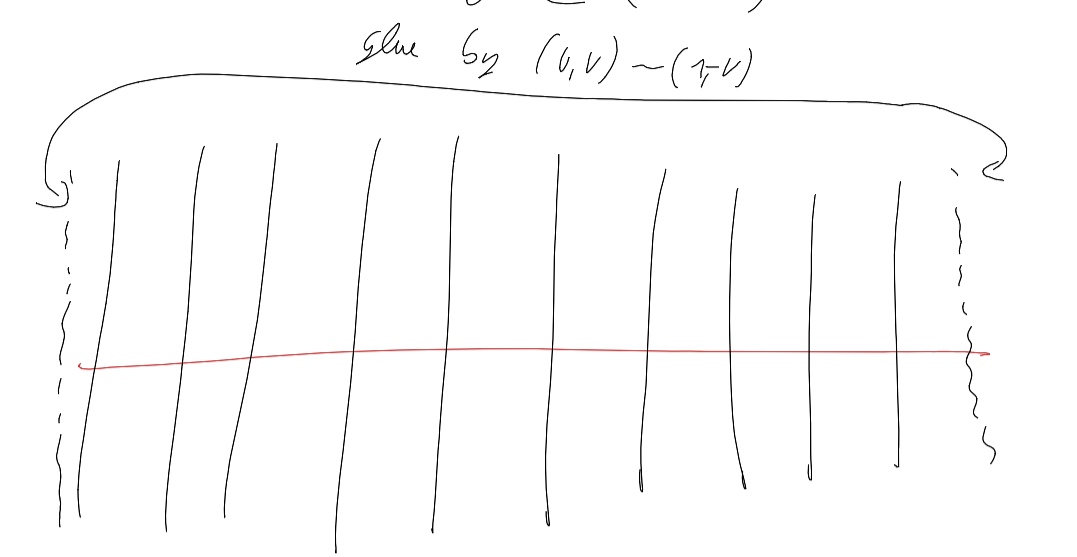 glue by (0,v) ~ (1,-v)